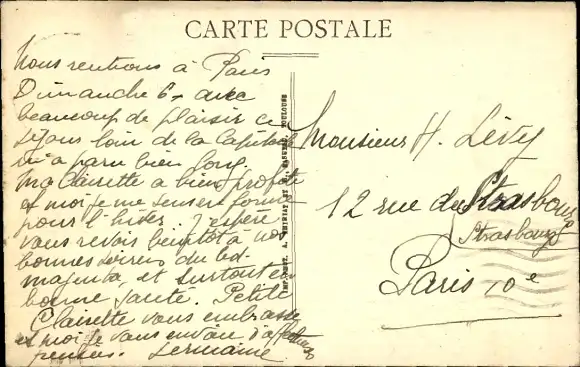 CARTE POSTALE
Nous rentrons à Paris
Dimanche 6 avec
beaucoup de plaisir ce
séjour loin de la Capitale
m'a paru bien long.
Ma Clairette a bien profité
et moi je me sens en forme
pour l'hiver. J'espère
vous revoir bientôt à nos
bonnes soirées du bd.
magenta, et surtout en
bonne santé. Petite
Clairette vous embrasse
et moi je vous envoie d'affectueuses
pensées. Germaine
TOULOUSE
Monsieur H. Lévy
12 rue du Strasbourg
Strasbourg
Paris 10e